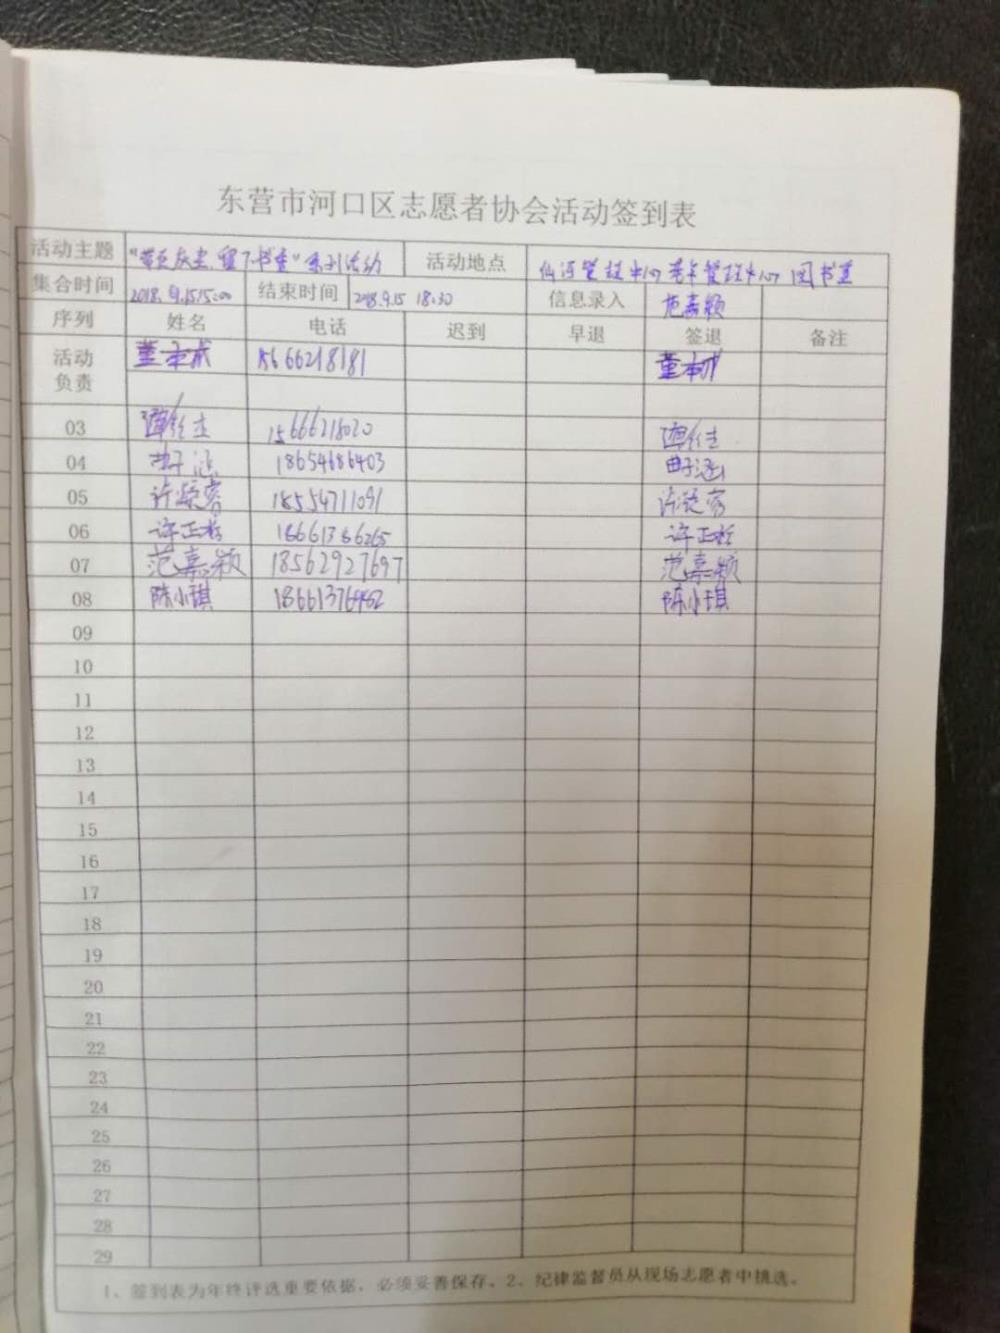 东营市河口区志愿者协会活动签到表
活动主题 "带走灰尘,留下书香"系列活动 活动地点 仙河管理中心老年管理中心图书室
集合时间 2018.9.15 15:00 结束时间 2018.9.15 18:30 信息录入 范嘉颖
序列 姓名 电话 迟到 早退 签退 备注
活动负责 董本成 15666218181 董本成
03 15666218020
04 曲子涵 18654686403 曲子涵
05 18554711091
06 许正 18661386265 许正
07 范嘉颖 18562927697 范嘉颖
08 陈小琪 陈小琪
09
10
11
12
13
14
15
16
17
18
19
20
21
22
23
24
25
26
27
28
29
1、签到表为年终评选重要依据,必须妥善保存。2、纪律监督员从现场志愿者中挑选。